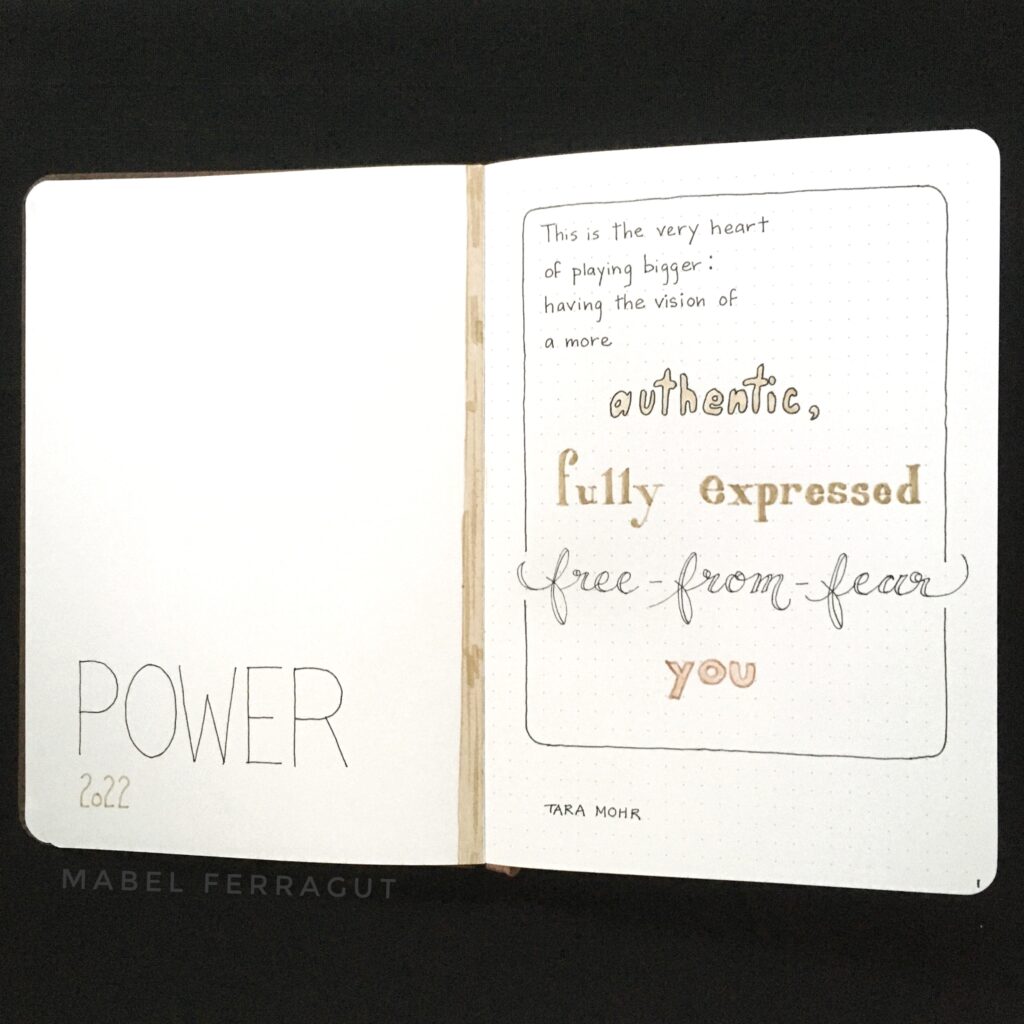 POWER
2022
This is the very heart
of playing bigger:
having the vision of
a more
authentic,
fully expressed
free-from-fear
you
TARA MOHR
1
MABEL FERRAGUT